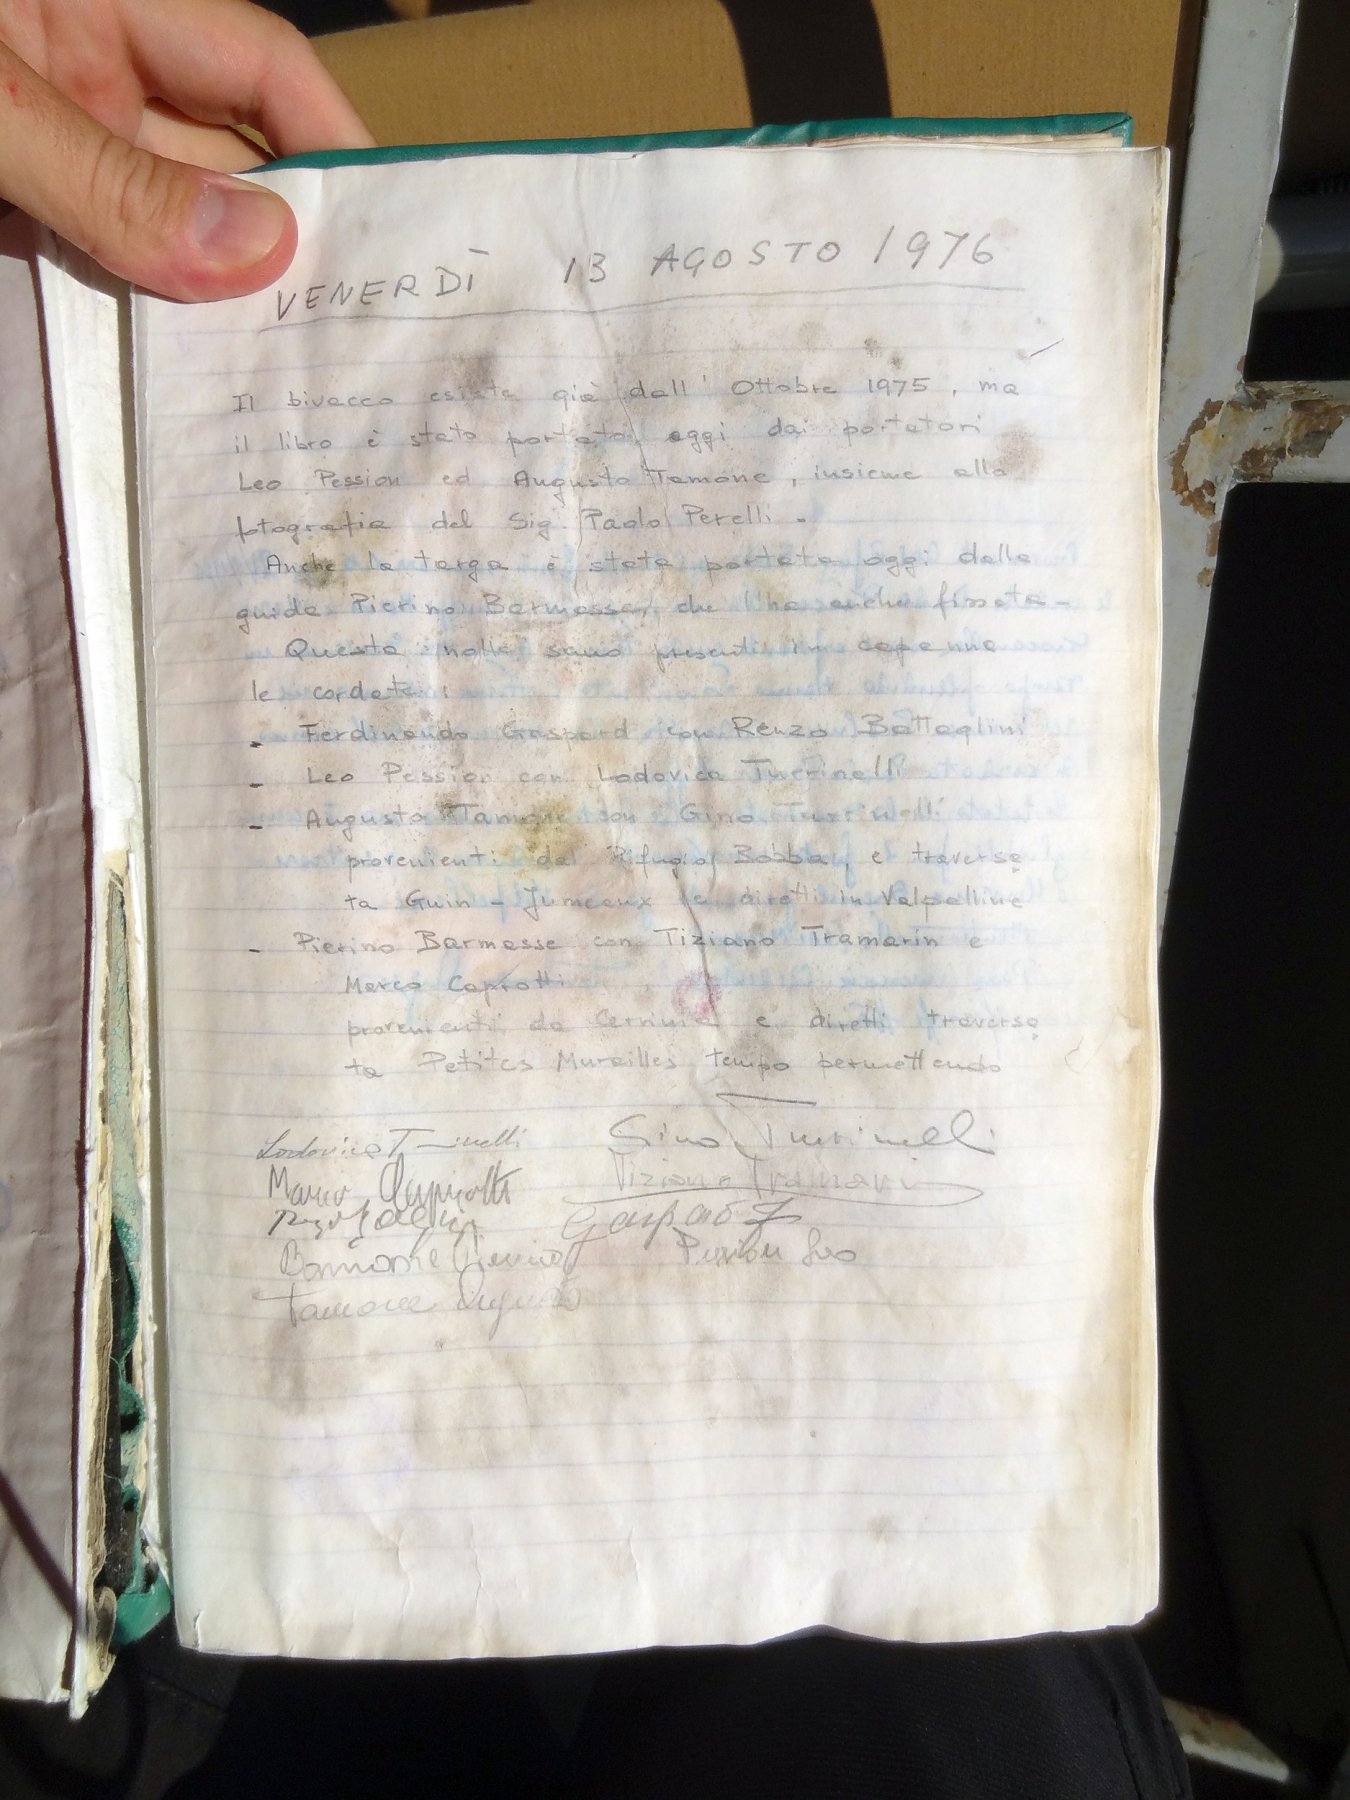 VENERDÌ 13 AGOSTO 1976
Il bivacco esiste già dall' Ottobre 1975, ma
il libro è stato portato oggi dai portatori
Leo Pession ed Augusto Tamone, insieme alla
fotografia del Sig. Paolo Perelli.
Anche la targa è stata portata oggi dalla
guida Pierino Barmasse, che l'ha anche fissata -
Questa notte sono presenti in capanna
le cordate:
- Ferdinando Gaspard con Renzo Battaglini
- Leo Pession con Lodovica Turrinelli
- Augusto Tamone con Gino Turrinelli
provenienti dal Rifugio Bobba, e traversa
ta Guin - Jumeaux e diretti in Valpelline
- Pierino Barmasse con Tiziano Tramarin e
Marco Caprotti
provenienti da Cervinia e diretti traversa
ta Petites Murailles tempo permettendo
Lodovica Turrinelli Gino Turrinelli
Marco Caprotti Tiziano Tramarin
Gaspard F
Barmasse Pierino Pession Leo
Tamone Augusto